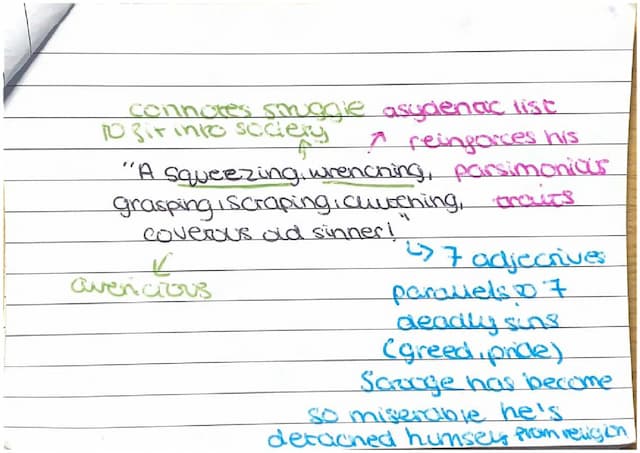 connotes struggle asydenac list
to fit into society reinforces his
"A squeezing, wrenching, parsimonious
grasping, scraping, clutching, traits
coverous old sinner!"
7 adjectives
avericious
parallels to 7
deadly sins
(greed, pride)
Scrooge has become
so miserable he's
detached humself from religion